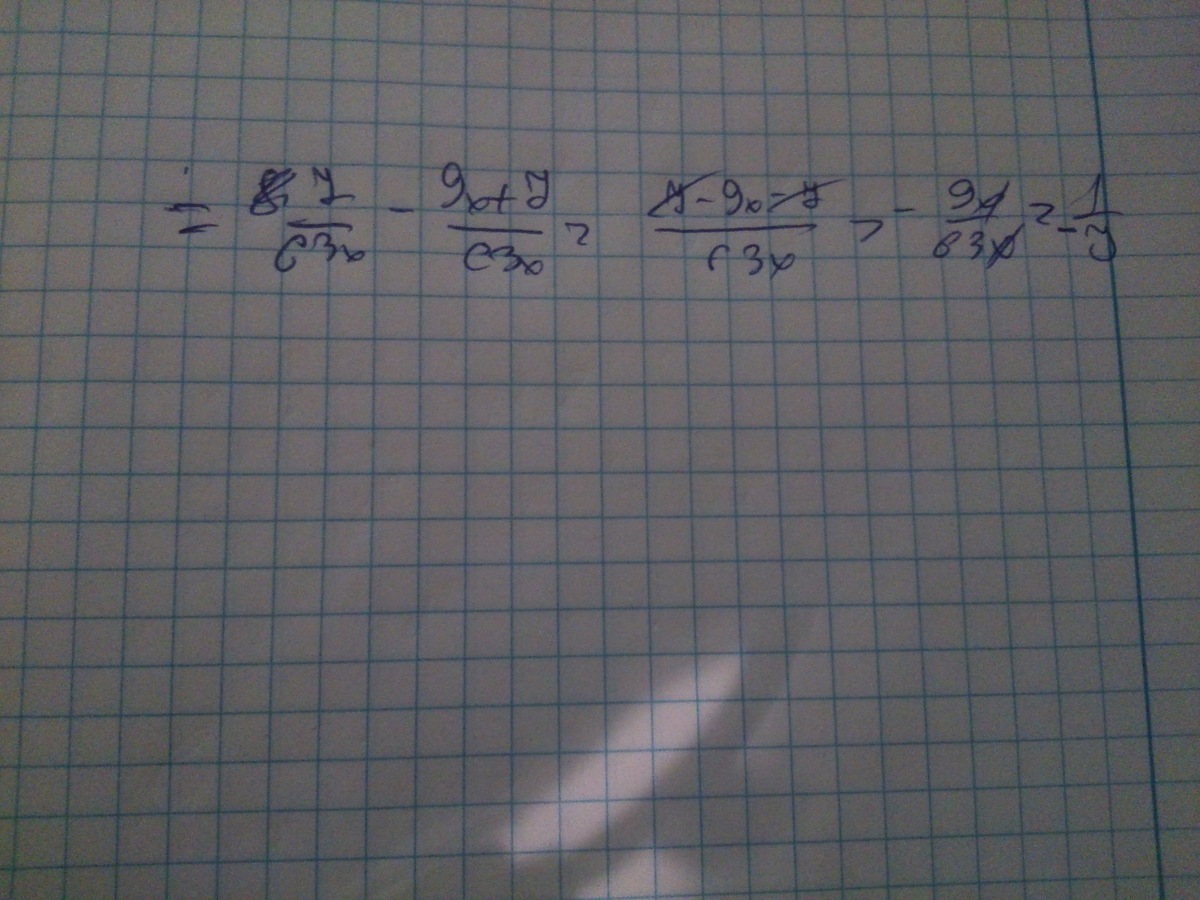 = 7/63x - 9x+7/63x = 7-9x-7/63x = - 9x/63x = -1/7